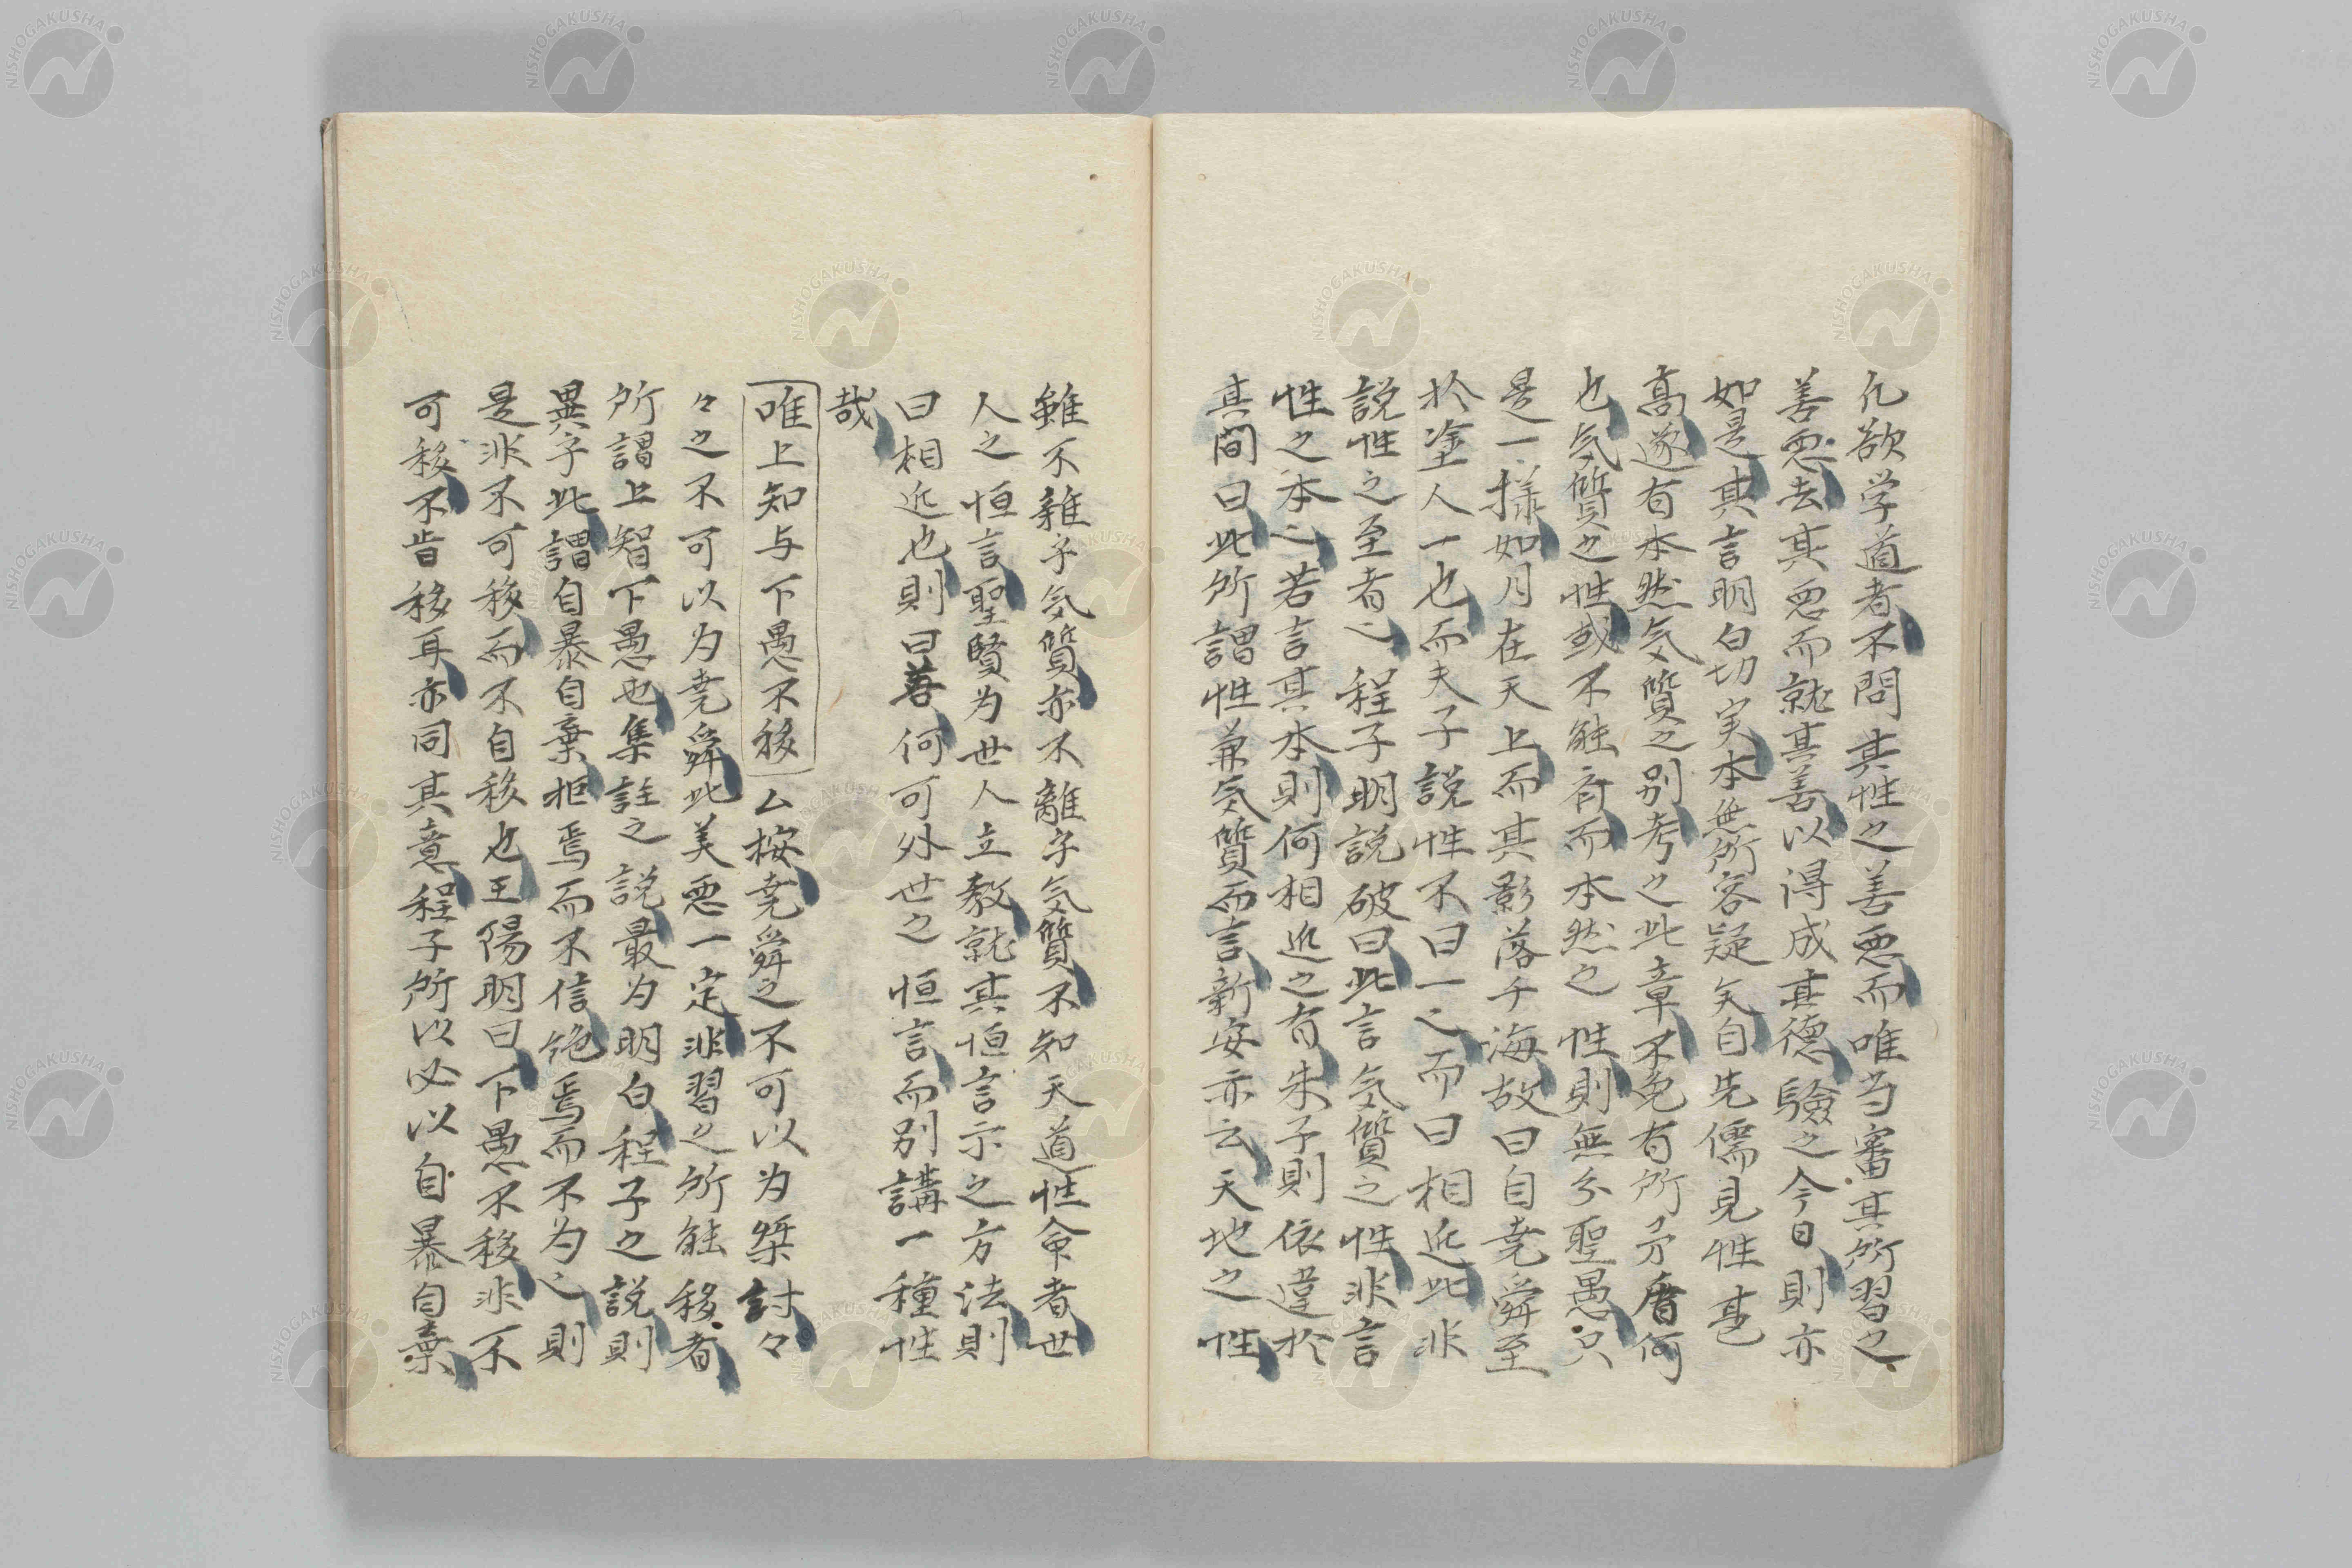 凢欲学道者不問其性之善悪而唯当審其所習之
善悪去其悪而就其善以得成其徳驗之今日則亦
如是其言明白切実本無所容疑矣自先儒見性甚
高遂有本然気質之别考之此章不免有所矛盾何
也気質之性或不能斉而本然之性則無分聖愚只
是一様如月在天上而其影落于海故曰自尭舜至
於塗人一也而夫子説性不曰一之而曰相近此非
説性之至者也程子明説破曰此言気質之性非言
性之本也若言其本則何相近之有朱子則依違於
其間曰此所謂性兼気質而言新安亦云天地之性
雖不雜乎気質亦不離乎気質不知天道性命者世
人之恒言聖賢为世人立教就其恒言示之方法則
曰相近也則曰善何可外世之恒言而别講一種性
哉
唯上知与下愚不移 厶按尭舜之不可以为桀討々
々之不可以为尭舜此美悪一定非習之所能移者
所謂上智下愚也集註之説最为明白程子之説則
異乎此謂自暴自棄拒焉而不信絶焉而不为也則
是非不可移而不自移也王陽明曰下愚不移非不
可移不肯移耳亦同其意程子所以必以自暴自棄